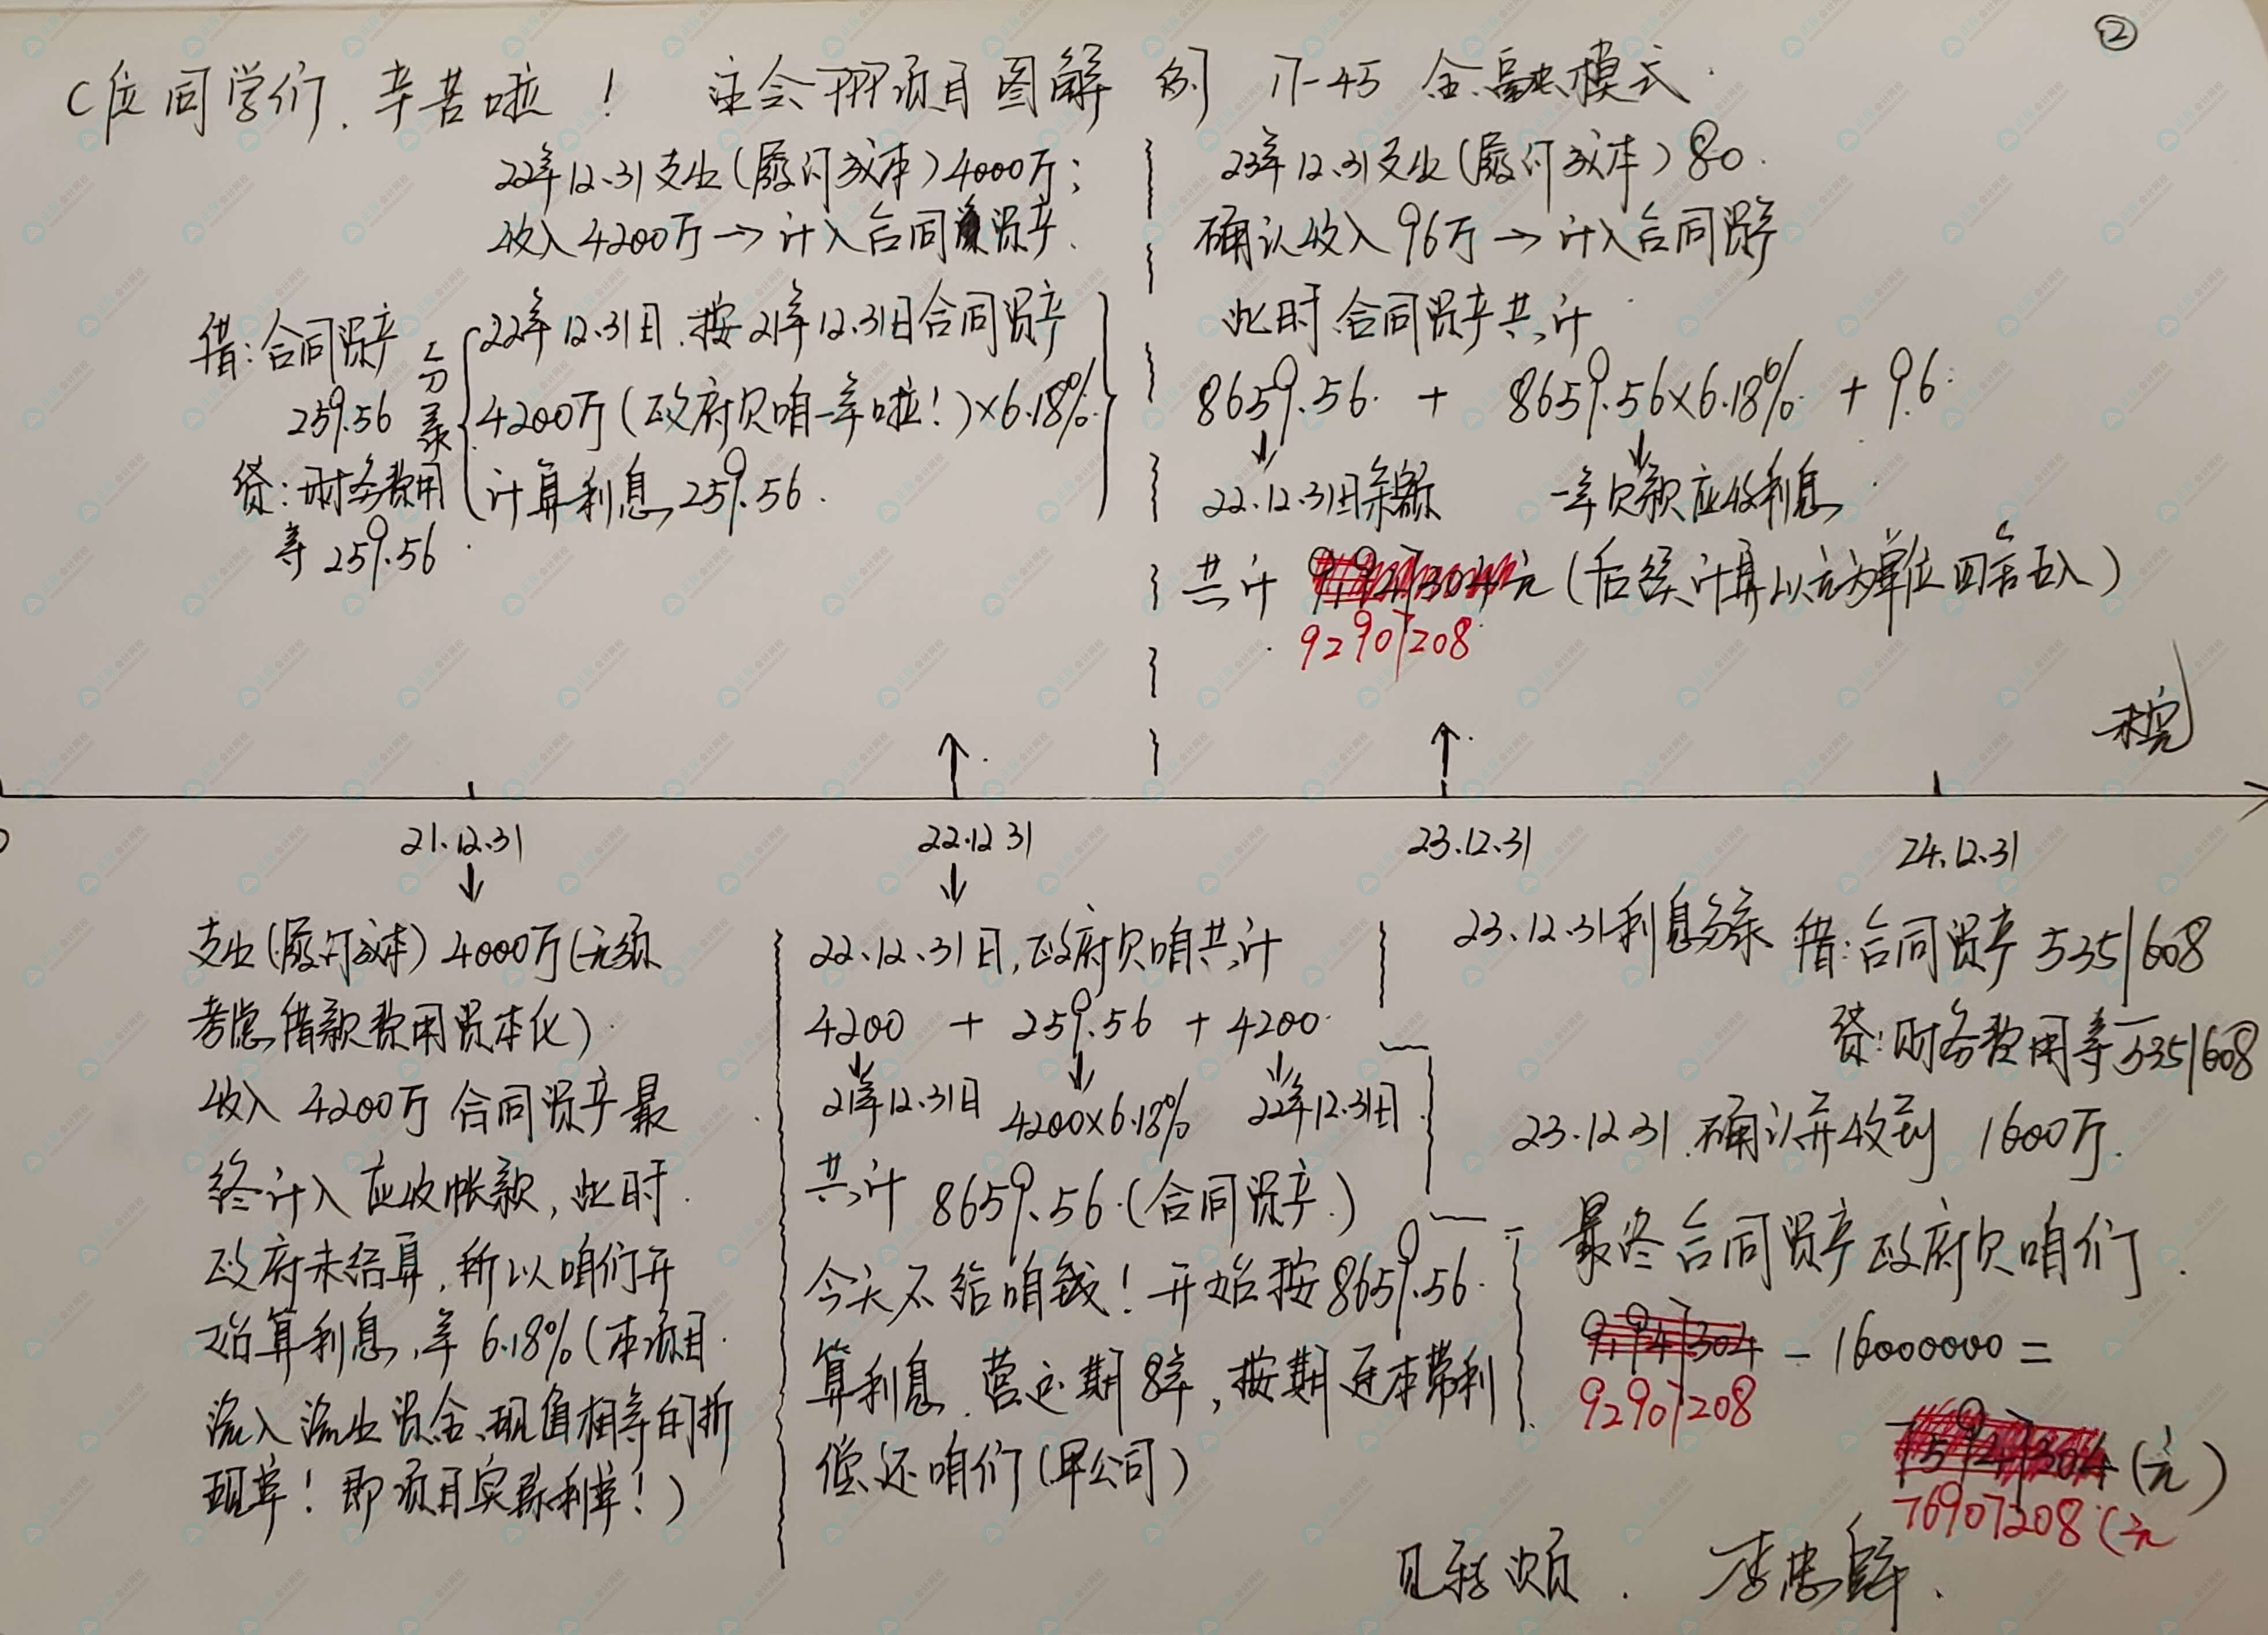 ②
C位同学们、辛苦啦！ 注会PPP项目图解 例 17-45 金融模式.
22年12.31支出(履约成本)4000万;
收入4200万→计入合同资产.
借:合同资产
259.56
贷:财务费用
等 259.56
分录
22年12.31日.按21年12.31日合同资产
4200万(政府欠咱一年啦!)×6.18%
计算利息259.56.
23年12.31支出(履约成本)80.
确认收入96万→计入合同资产
此时合同资产共计
8659.56 + 8659.56×6.18% + 96
22.12.31日余额 一年欠款应收利息
共计 元(后续计算以元为单位四舍五入)
92907208
未完
21.12.31 22.12 31 23.12.31 24.12.31
支出(履约成本)4000万(无须
考虑借款费用资本化)
收入 4200万 合同资产最
终计入应收帐款,此时
政府未结算,所以咱们开
始算利息,率 6.18%(本项目
流入流出资金现值相等的折
现率!即项目实际利率!)
22.12.31日,政府欠咱共计
4200 + 259.56 + 4200
21年12.31日 4200×6.18% 22年12.31日
共计 8659.56(合同资产.)
今天不给咱钱!开始按8659.56
算利息.营运期8年,按期还本带利
偿还咱们(甲公司)
23.12.31利息分录 借:合同资产 5351608
贷:财务费用等5351608
23.12.31.确认并收到 1600万.
最终合同资产政府欠咱们
- 16000000 =
92907208
(元)
76907208(元
李忠魁.